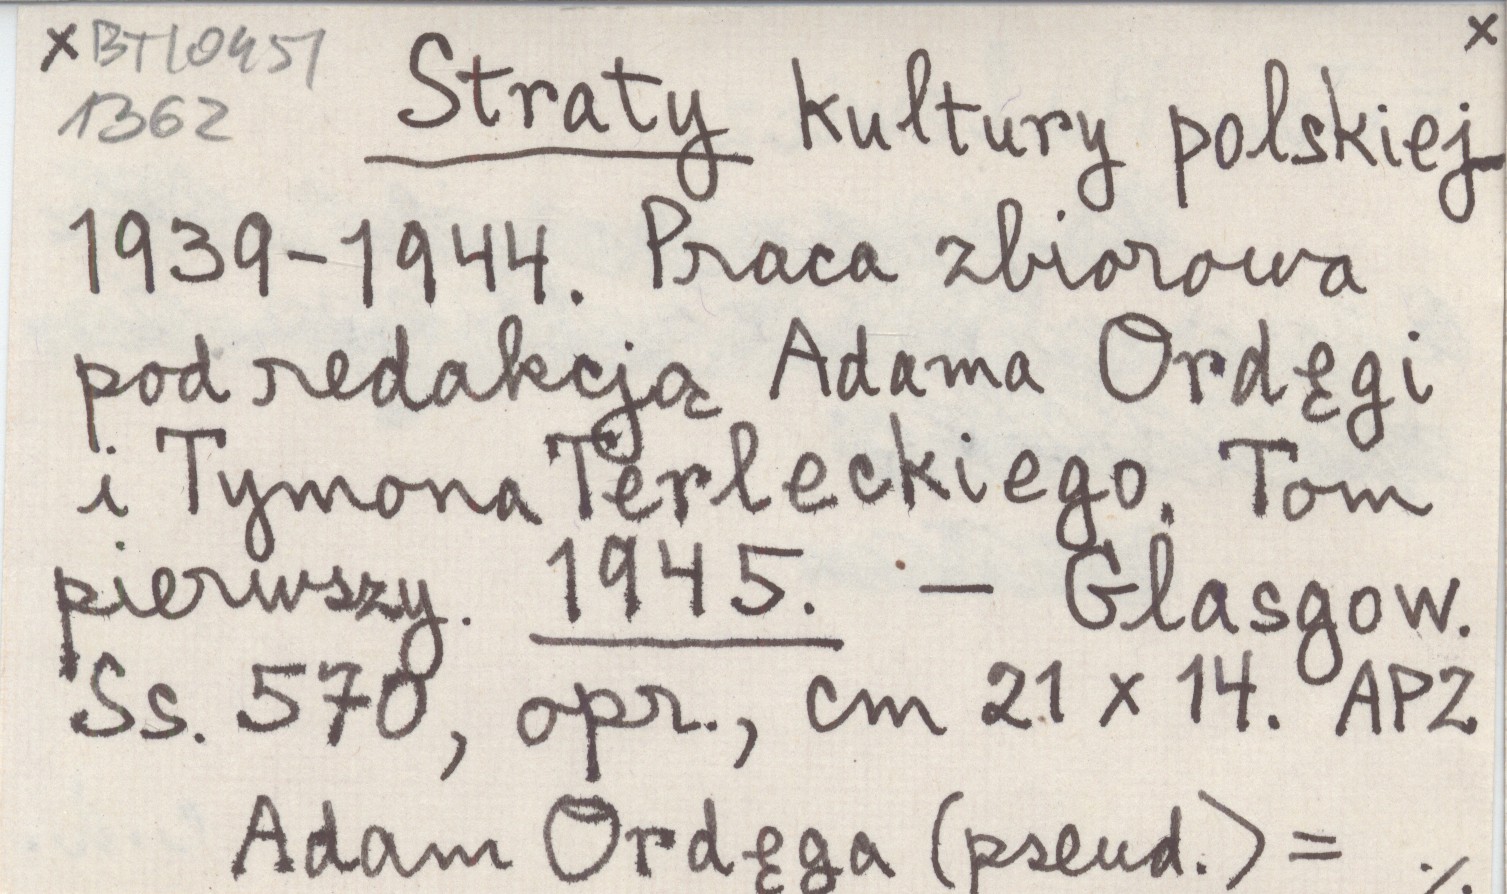 x BT10451 x
1362
Straty kultury polskiej
1939-1944. Praca zbiorowa
pod redakcją Adama Ordęgi
i Tymona Terleckiego. Tom
pierwszy. 1945. — Glasgow.
Ss. 570, opr., cm 21 x 14. APZ
Adam Ordęga (pseud.) = ./.